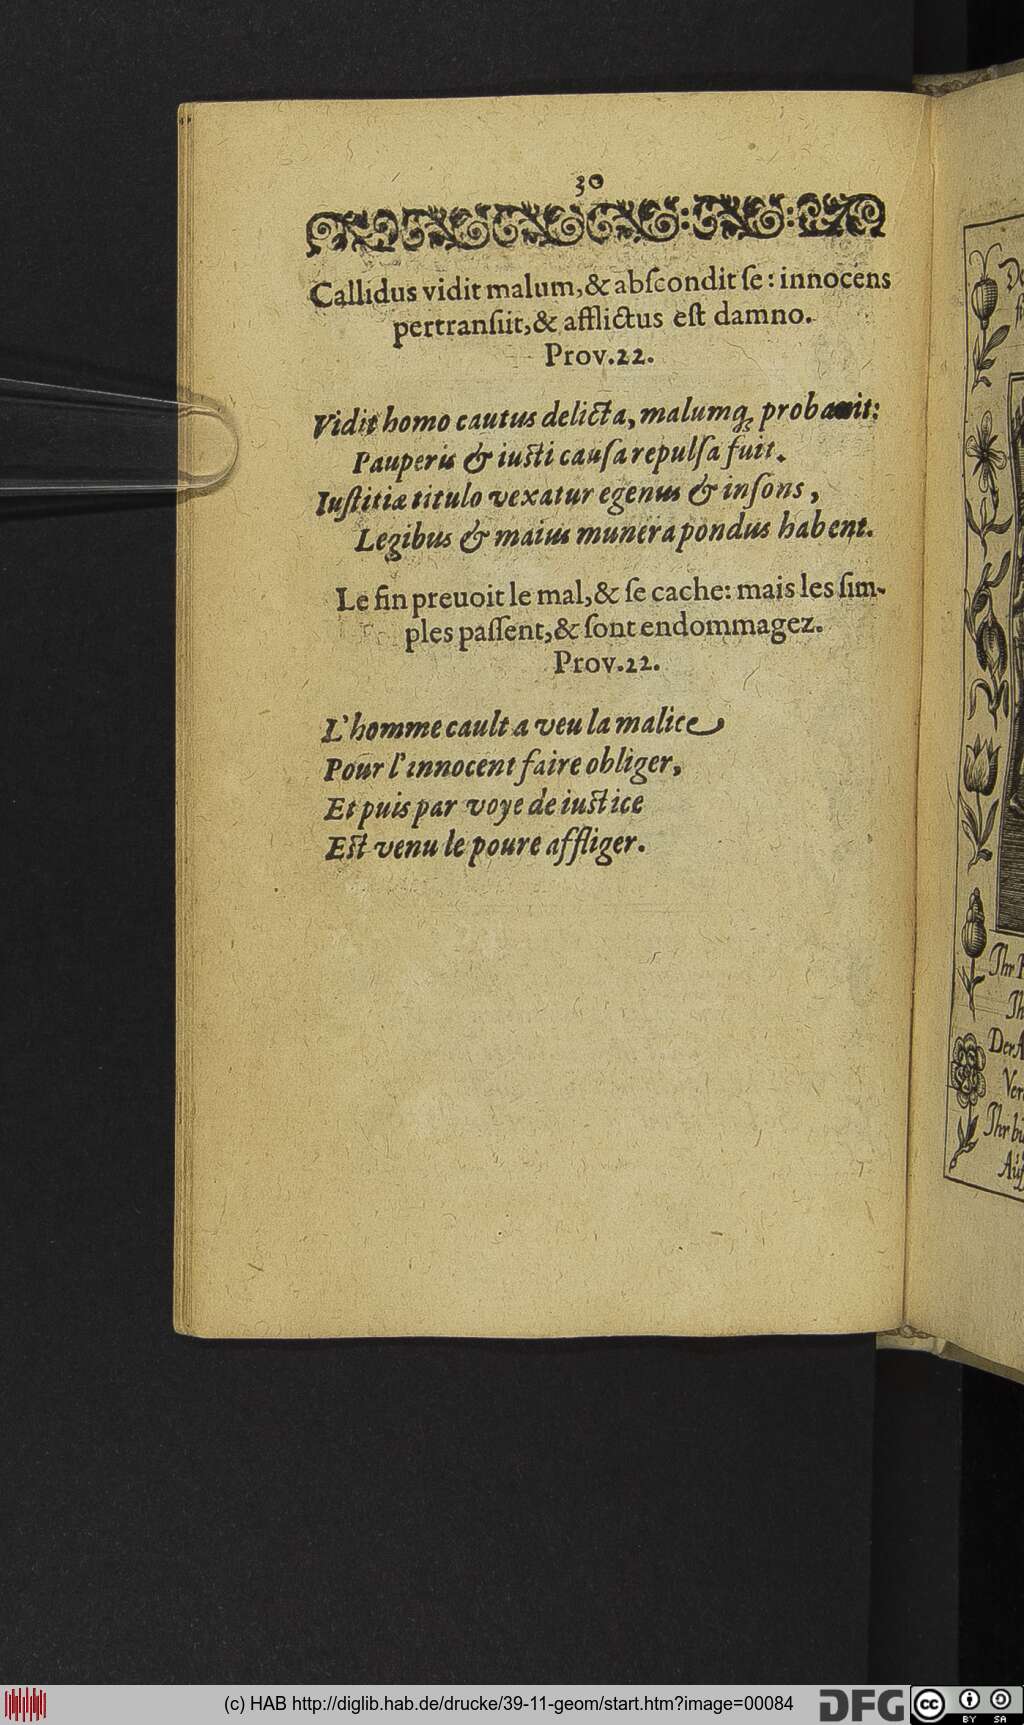 30
Callidus vidit malum,& abſcondit ſe: innocens
pertranſiit,& afflictus eſt damno.
Prov.22.
Vidit homo cautus delicta, malumq; probauit:
Pauperis & iusti cauſa repulſa fuit.
Iuſtitiæ titulo vexatur egenus & inſons,
Legibus & maius munera pondus habent.
Le fin preuoit le mal,& ſe cache: mais les ſim-
ples paſſent,& ſont endommagez.
Prov.22.
L'homme cault a veu la malice
Pour l'innocent faire obliger,
Et puis par voye de iustice
Est venu le poure affliger.
Ihr
Ih
Der
Ver
Ihr
Auſ
(c) HAB http://diglib.hab.de/drucke/39-11-geom/start.htm?image=00084
DFG
cc
BY SA